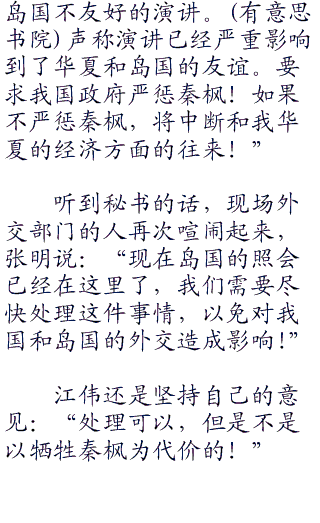 岛国不友好的演讲。(有意思
书院) 声称演讲已经严重影响
到了华夏和岛国的友谊。要
求我国政府严惩秦枫！如果
不严惩秦枫，将中断和我华
夏的经济方面的往来！”
听到秘书的话，现场外
交部门的人再次喧闹起来，
张明说：“现在岛国的照会
已经在这里了，我们需要尽
快处理这件事情，以免对我
国和岛国的外交造成影响！”
江伟还是坚持自己的意
见：“处理可以，但是不是
以牺牲秦枫为代价的！”